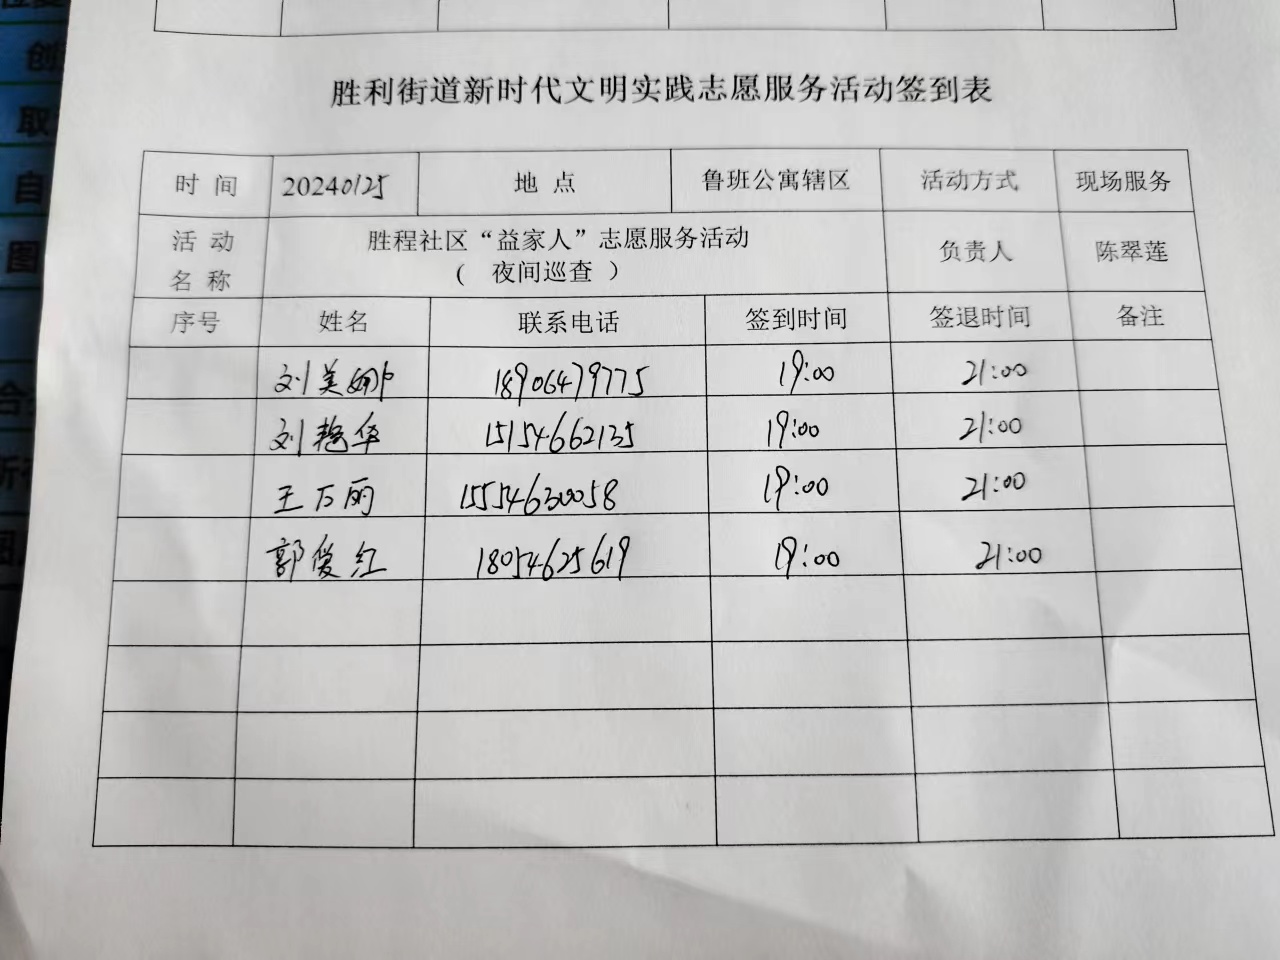 胜利街道新时代文明实践志愿服务活动签到表
时 间 20240125 地 点 鲁班公寓辖区 活动方式 现场服务
活 动 名 称 胜程社区“益家人”志愿服务活动 负责人 陈翠莲
( 夜间巡查 )
序号 姓名 联系电话 签到时间 签退时间 备注
刘美娜 18906479775 19:00 21:00
刘艳华 15154662135 19:00 21:00
王万丽 15554630058 19:00 21:00
郭爱红 18054625619 19:00 21:00
创
取
自
图
合
所
图